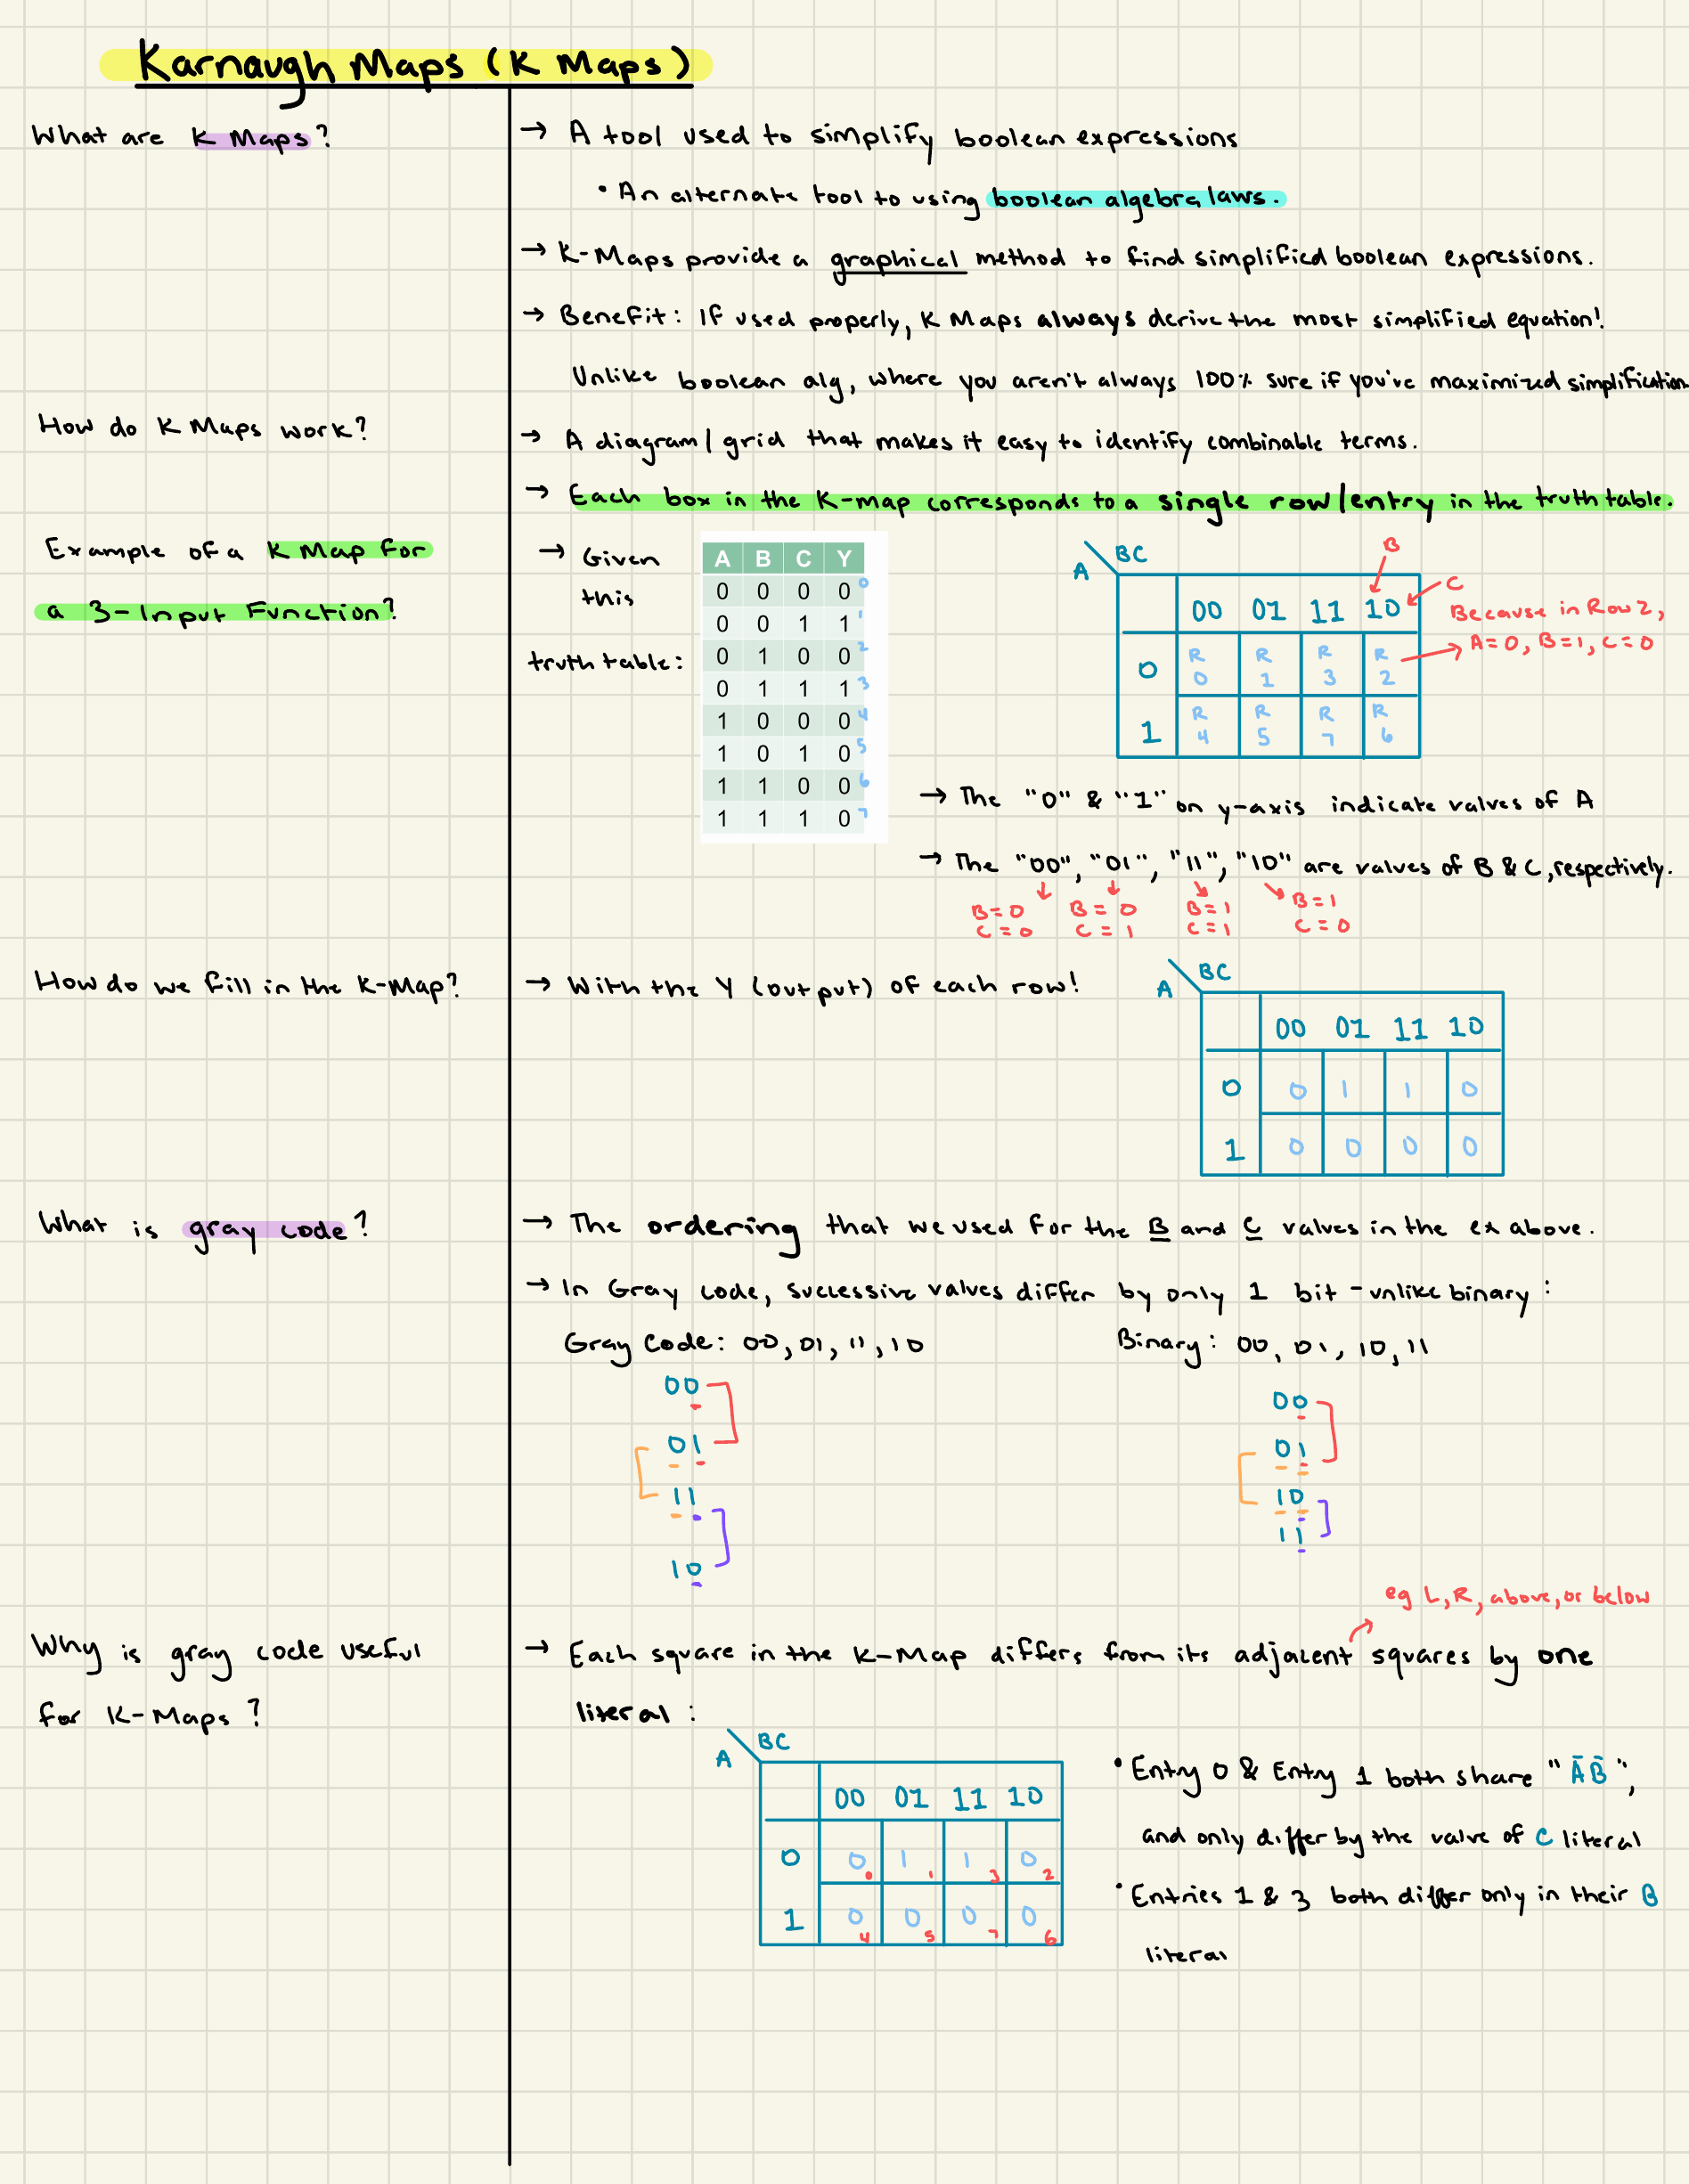 Karnaugh Maps (K Maps)
What are K Maps?
→ A tool used to simplify boolean expressions
• An alternate tool to using boolean algebra laws.
→ K-Maps provide a graphical method to find simplified boolean expressions.
→ Benefit: If used properly, K Maps always derive the most simplified equation!
Unlike boolean alg, where you aren't always 100% sure if you've maximized simplification
How do K Maps work?
→ A diagram/grid that makes it easy to identify combinable terms.
→ Each box in the K-map corresponds to a single row/entry in the truth table.
Example of a K Map for
a 3-Input Function?
→ Given
this
truth table:
A B C Y
0 0 0 0 0
0 0 1 1 1
0 1 0 0 2
0 1 1 1 3
1 0 0 0 4
1 0 1 0 5
1 1 0 0 6
1 1 1 0 7
A BC
B
C
00 01 11 10
0 R0 R1 R3 R2
1 R4 R5 R7 R6
Because in Row 2,
A=0, B=1, C=0
→ The "0" & "1" on y-axis indicate values of A
→ The "00", "01", "11", "10" are values of B & C, respectively.
B=0 B=0 B=1 B=1
C=0 C=1 C=1 C=0
How do we fill in the K-Map?
→ With the Y (output) of each row!
A BC
00 01 11 10
0 0 1 1 0
1 0 0 0 0
What is gray code?
→ The ordering that we used for the B and C values in the ex above.
→ In Gray code, successive values differ by only 1 bit - unlike binary:
Gray Code: 00, 01, 11, 10
Binary: 00, 01, 10, 11
00
01
11
10
00
01
10
11
eg L, R, above, or below
Why is gray code useful
for K-Maps?
→ Each square in the K-Map differs from its adjacent squares by one
literal:
A BC
00 01 11 10
0 0 0 1 1 1 3 0 2
1 0 4 0 5 0 7 0 6
• Entry 0 & Entry 1 both share "ĀB̄",
and only differ by the value of C literal
• Entries 1 & 3 both differ only in their B
literal